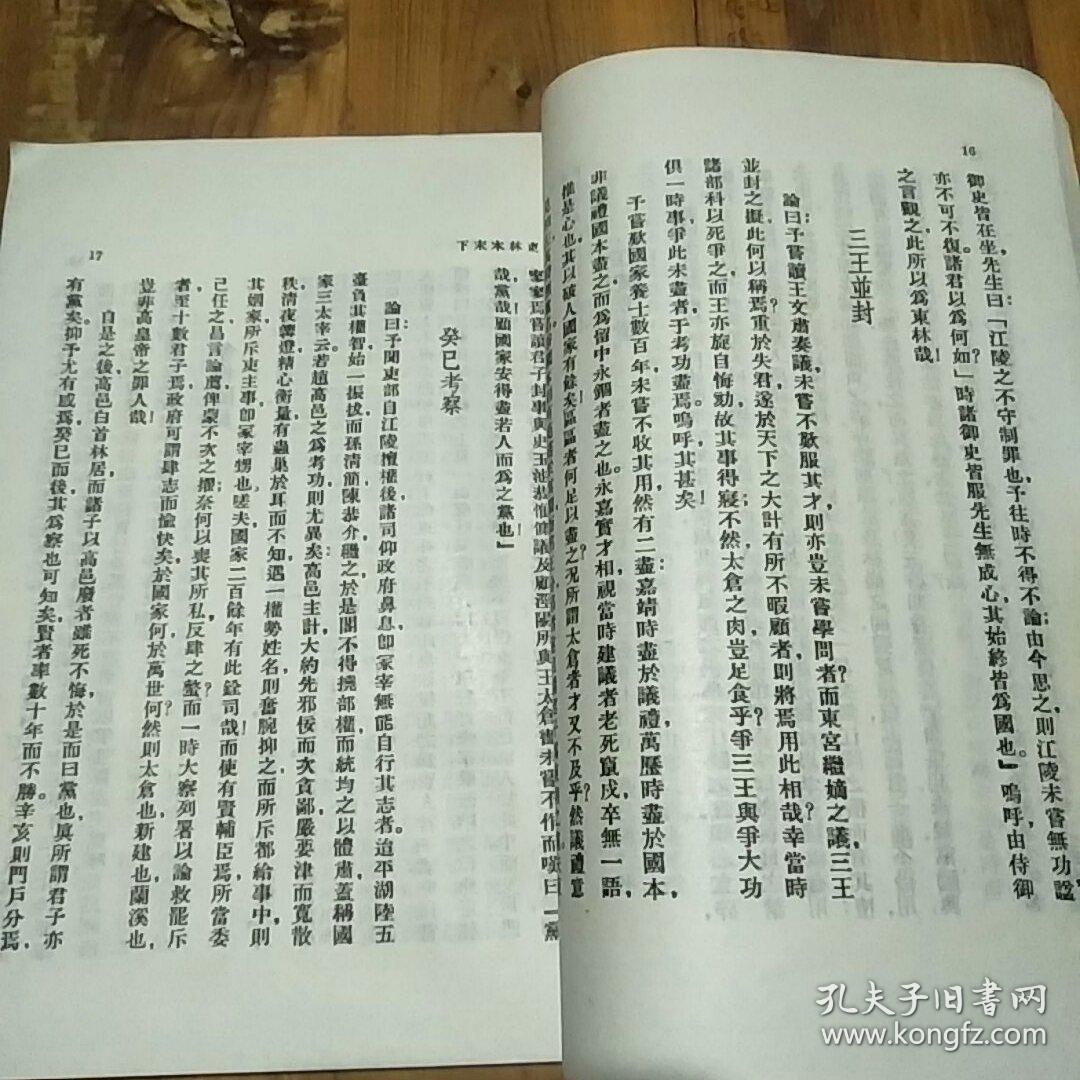 16
御史皆在坐，先生曰：「江陵之不守制，罪也，予往時不得不論；由今思之，則江陵未嘗無功，諡
亦不可不復，諸君以爲何如？」時諸御史皆服先生無成心，其始終皆爲國也。」嗚呼！由侍御
之言觀之，此所以爲東林哉！
三王並封
論曰：予嘗讀王文肅奏議，未嘗不歎服其才，則亦豈未嘗學問者？而東宮繼嫡之議，三王
並封之擬，此何以稱焉？重於失君，遂於天下之大計有所不暇顧者，則將焉用此相哉！幸當時
諸部科以死爭之，而王亦旋自悔劾，故其事得寢，不然，太倉之肉豈足食乎？爭三王與爭大功
俱一時事，爭此未盡者，于考功盡焉，嗚呼！其甚矣！
予嘗歎國家養士數百年，未嘗不收其用，然有二盡：嘉靖時盡於議禮，萬歷時盡於國本，
非議禮國本盡之，而爲留中永錮者盡之也。永嘉實才相，視當時建議者老死竄戍，卒無一語，
權是心也，其以破人國家有餘矣，區區者何足以盡之？況所謂太倉者，才又不及乎？然議禮意
林本末下
17
寥寥焉。嘗讀君子封事與史玉池恭惟儆議及顧涇陽所與王太倉書，未嘗不作而嘆曰：「黨
哉，黨哉！顧國家安得盡若人而爲之黨也！」
癸巳考察
論曰：予聞吏部自江陵擅權後，諸司仰政府鼻息，卽冢宰無能自行其志者。迨平湖陸五
臺負其權智，始一振拔，而孫清簡、陳恭介繼之，於是閣不得撓部權，而統均之以體肅，蓋稱國
家三太宰云。若趙高邑之爲考功，則尤異矣；高邑主計，大約先邪佞而次貪鄙，嚴要津而寬散
秩，清夜講澄，精心衡量，有蟲巢於耳而不知，遇一權勢姓名，則奮腕抑之，而所斥都給事中，則
其姻家，所斥吏主事，卽冢宰甥也。嗟夫！國家二百餘年，有此銓司哉！而使有賢輔臣焉，所當委
己任之，昌言論薦，俾蒙不次之擢，奈何以喪其所私，反肆之螫？而一時大察列署，以論救罷斥
者至十數君子焉，政府可謂肆志而愉快矣，於國家何？於萬世何？然則太倉也，新建也，蘭溪也，
豈非高皇帝之罪人哉！
自是之後，高邑白首林居，而諸子以高邑廢者，雖死不悔，於是而曰黨也，眞所謂君子亦
有黨矣。抑予尤有感焉，癸巳而後，其爲察也可知矣，賢者率數十年而不勝，辛亥則門戶分焉，
孔夫子旧书网
www.kongfz.com